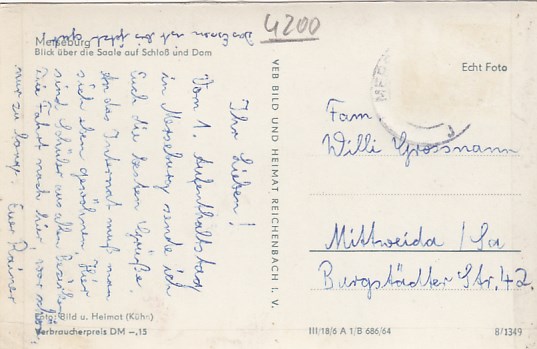 4200
das Essen ist bis jetzt gut!
Merseburg
Blick über die Saale auf Schloß und Dom
Ihr Lieben!
Vom 1. Aufenthaltstag
in Merseburg sende ich
Euch die besten Grüße.
An das Internat muß man
sich eben gewöhnen. Hier
sind Schüler aus allen Bezirken.
Die Fahrt nach hier, war schön,
nur zu lang. Euer Rainer
Foto: Bild u. Heimat (Kühn)
Verbraucherpreis DM -,15
VEB BILD UND HEIMAT REICHENBACH I. V.
Echt Foto
MERSE
Fam.
Willi Grossmann
Mittweida / Sa
Burgstädter Str. 42.
III/18/6 A 1/B 686/64
8/1349